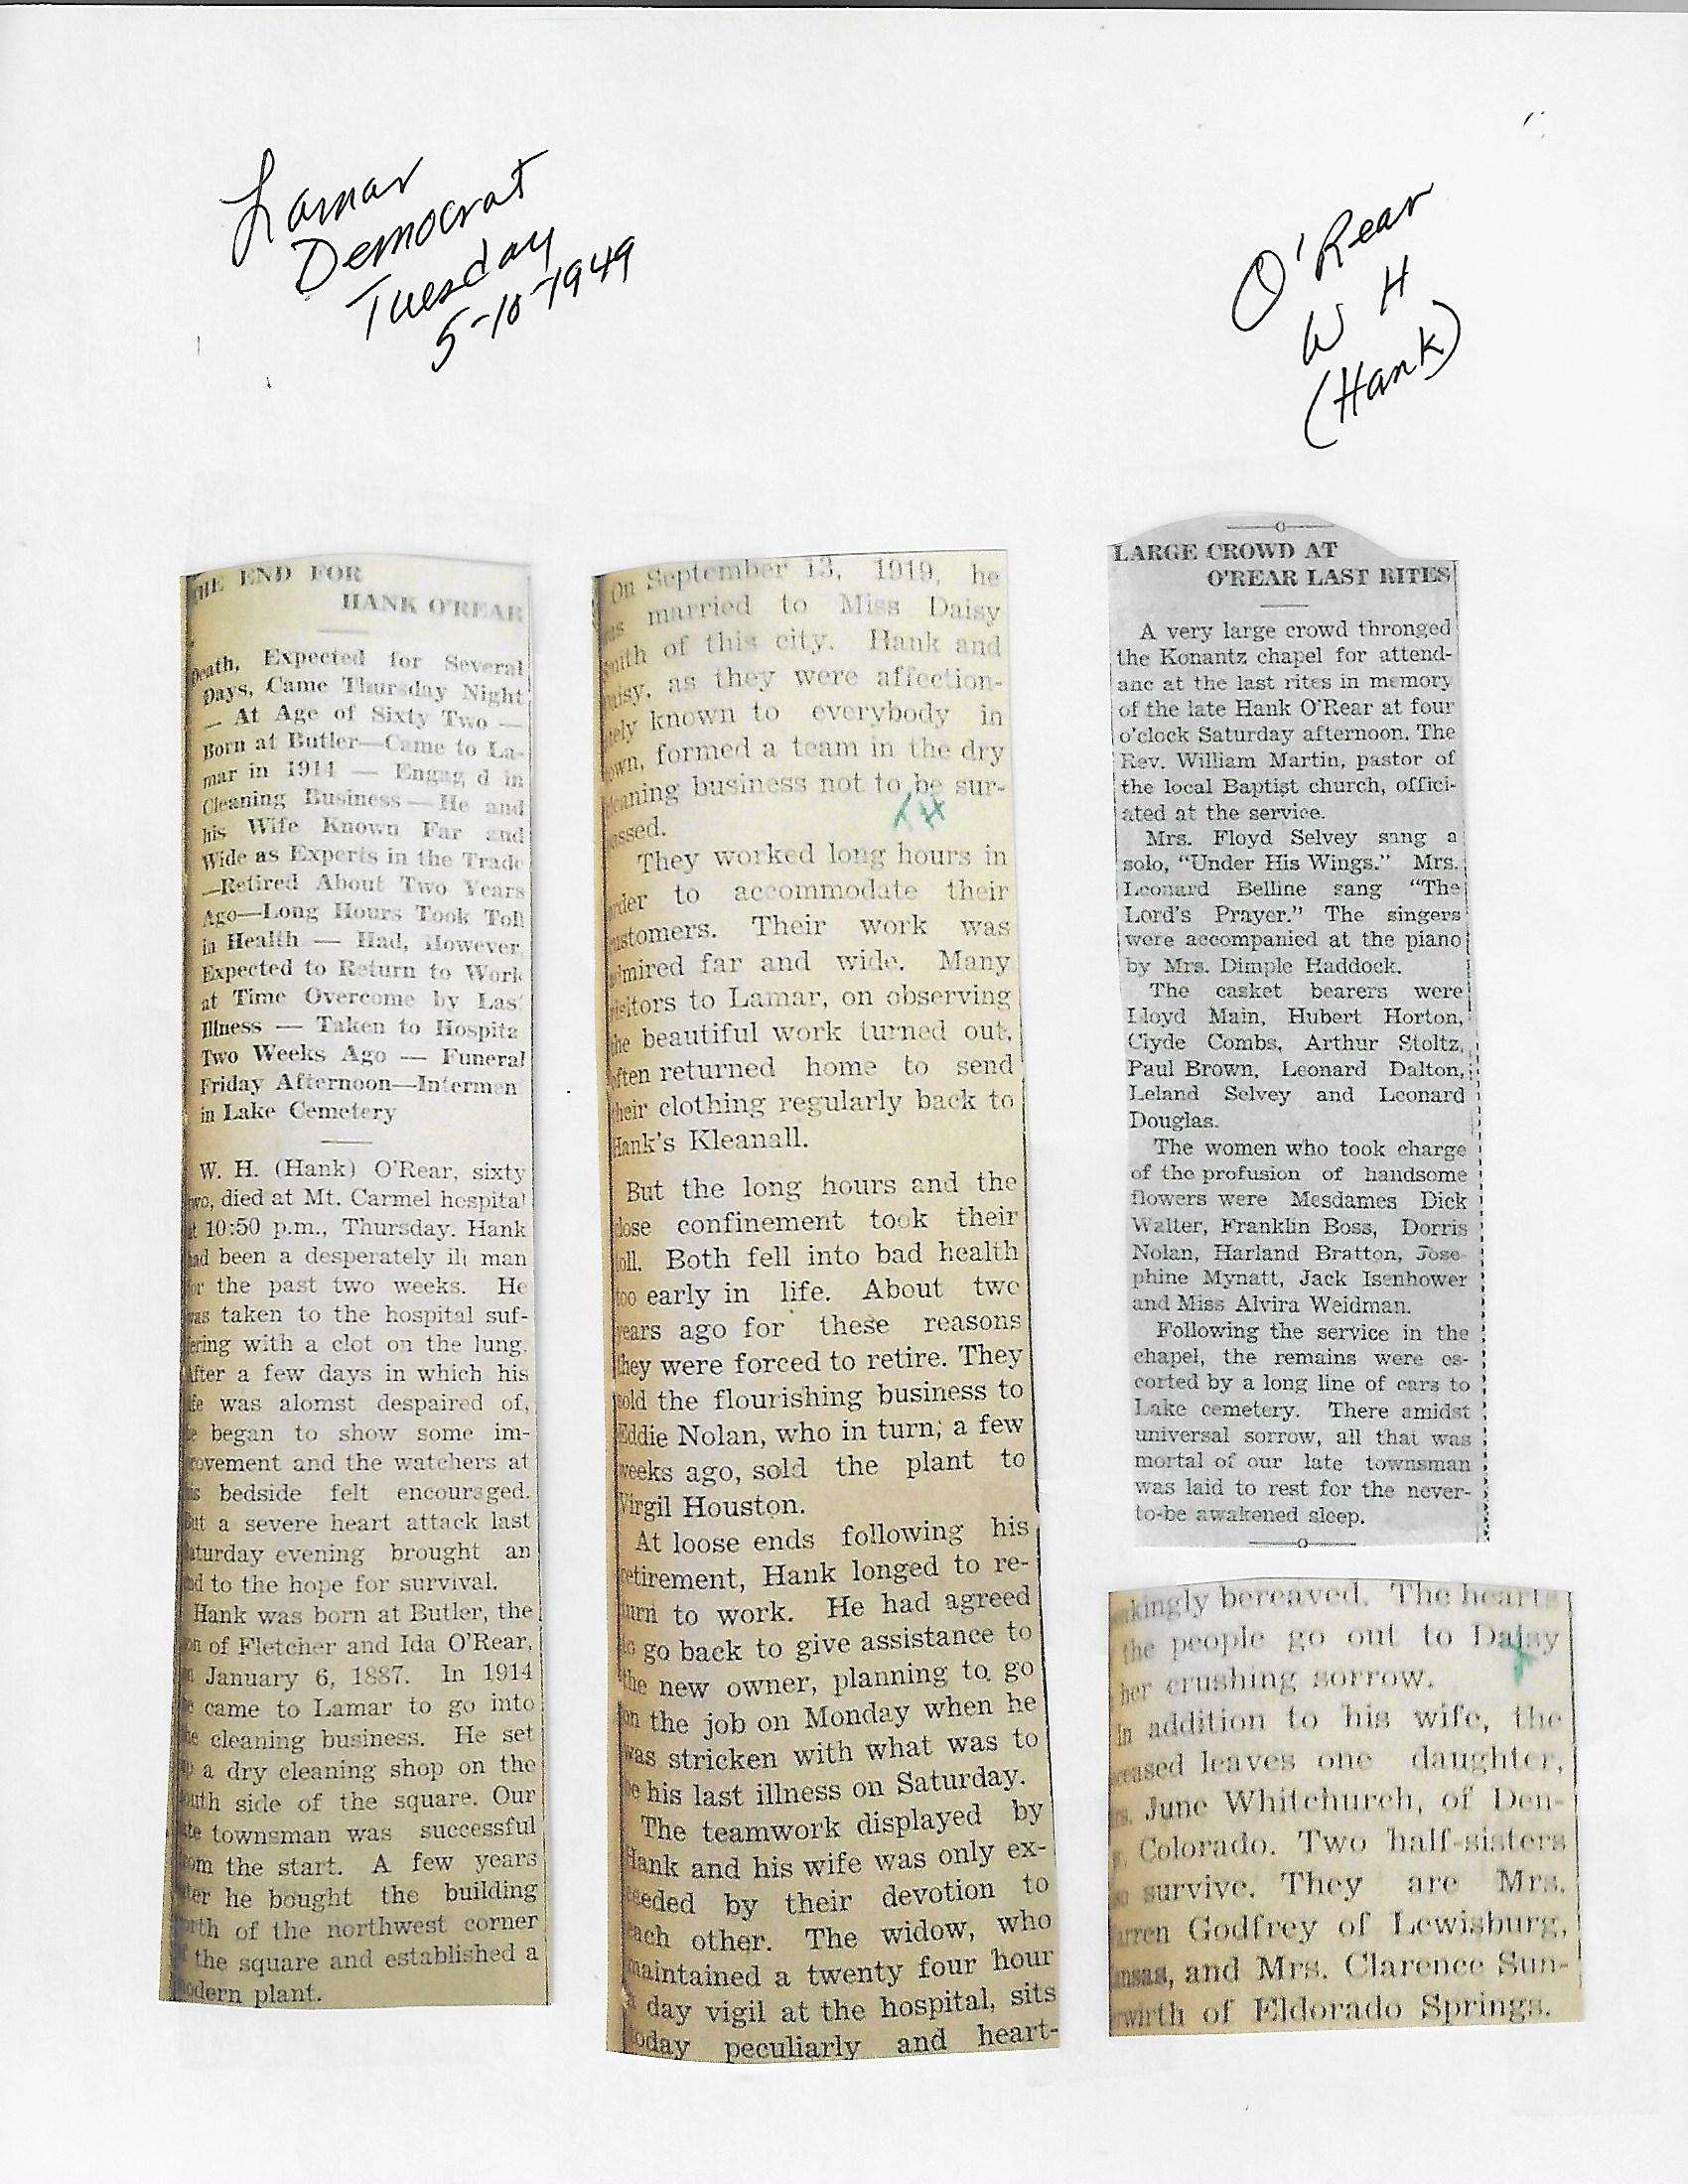 Lamar
Democrat
Tuesday
5-10-1949
O'Rear
W H
(Hank)
THE END FOR
HANK O'REAR
Death, Expected for Several
Days, Came Thursday Night
— At Age of Sixty Two —
Born at Butler—Came to La-
mar in 1914 — Engag d in
Cleaning Business — He and
his Wife Known Far and
Wide as Experts in the Trade
—Retired About Two Years
Ago—Long Hours Took Toll
in Health — Had, However
Expected to Return to Work
at Time Overcome by Las
Illness — Taken to Hospita
Two Weeks Ago — Funeral
Friday Afternoon—Intermen
in Lake Cemetery
W. H. (Hank) O'Rear, sixty
wo, died at Mt. Carmel hospital
t 10:50 p.m., Thursday. Hank
ad been a desperately ill man
or the past two weeks. He
was taken to the hospital suf-
ering with a clot on the lung.
After a few days in which his
ife was alomst despaired of,
e began to show some im-
rovement and the watchers at
is bedside felt encouraged.
But a severe heart attack last
aturday evening brought an
nd to the hope for survival.
Hank was born at Butler, the
on of Fletcher and Ida O'Rear,
n January 6, 1887. In 1914
e came to Lamar to go into
he cleaning business. He set
p a dry cleaning shop on the
outh side of the square. Our
te townsman was successful
om the start. A few years
ter he bought the building
orth of the northwest corner
f the square and established a
odern plant.
On September 13, 1919, he
as married to Miss Daisy
mith of this city. Hank and
aisy, as they were affection-
ately known to everybody in
own, formed a team in the dry
leaning business not to be sur-
assed.
They worked long hours in
rder to accommodate their
ustomers. Their work was
dmired far and wide. Many
isitors to Lamar, on observing
the beautiful work turned out,
often returned home to send
heir clothing regularly back to
Hank's Kleanall.
But the long hours and the
close confinement took their
toll. Both fell into bad health
too early in life. About two
years ago for these reasons
they were forced to retire. They
sold the flourishing business to
Eddie Nolan, who in turn, a few
weeks ago, sold the plant to
Virgil Houston.
At loose ends following his
retirement, Hank longed to re-
urn to work. He had agreed
to go back to give assistance to
the new owner, planning to go
on the job on Monday when he
was stricken with what was to
be his last illness on Saturday.
The teamwork displayed by
Hank and his wife was only ex-
ceeded by their devotion to
each other. The widow, who
maintained a twenty four hour
a day vigil at the hospital, sits
today peculiarly and heart-
LARGE CROWD AT
O'REAR LAST RITES
A very large crowd thronged
the Konantz chapel for attend-
anc at the last rites in memory
of the late Hank O'Rear at four
o'clock Saturday afternoon. The
Rev. William Martin, pastor of
the local Baptist church, offici-
ated at the service.
Mrs. Floyd Selvey sang a
solo, "Under His Wings." Mrs.
Leonard Belline sang "The
Lord's Prayer." The singers
were accompanied at the piano
by Mrs. Dimple Haddock.
The casket bearers were
Lloyd Main, Hubert Horton,
Clyde Combs, Arthur Stoltz,
Paul Brown, Leonard Dalton,
Leland Selvey and Leonard
Douglas.
The women who took charge
of the profusion of handsome
flowers were Mesdames Dick
Walter, Franklin Boss, Dorris
Nolan, Harland Bratton, Jose-
phine Mynatt, Jack Isenhower
and Miss Alvira Weidman.
Following the service in the
chapel, the remains were es-
corted by a long line of cars to
Lake cemetery. There amidst
universal sorrow, all that was
mortal of our late townsman
was laid to rest for the never-
to-be awakened sleep.
kingly bereaved. The hearts
the people go out to Daisy
her crushing sorrow.
In addition to his wife, the
eased leaves one daughter,
rs. June Whitchurch, of Den-
r, Colorado. Two half-sisters
so survive. They are Mrs.
arren Godfrey of Lewisburg,
ansas, and Mrs. Clarence Sun-
rwirth of Eldorado Springs.